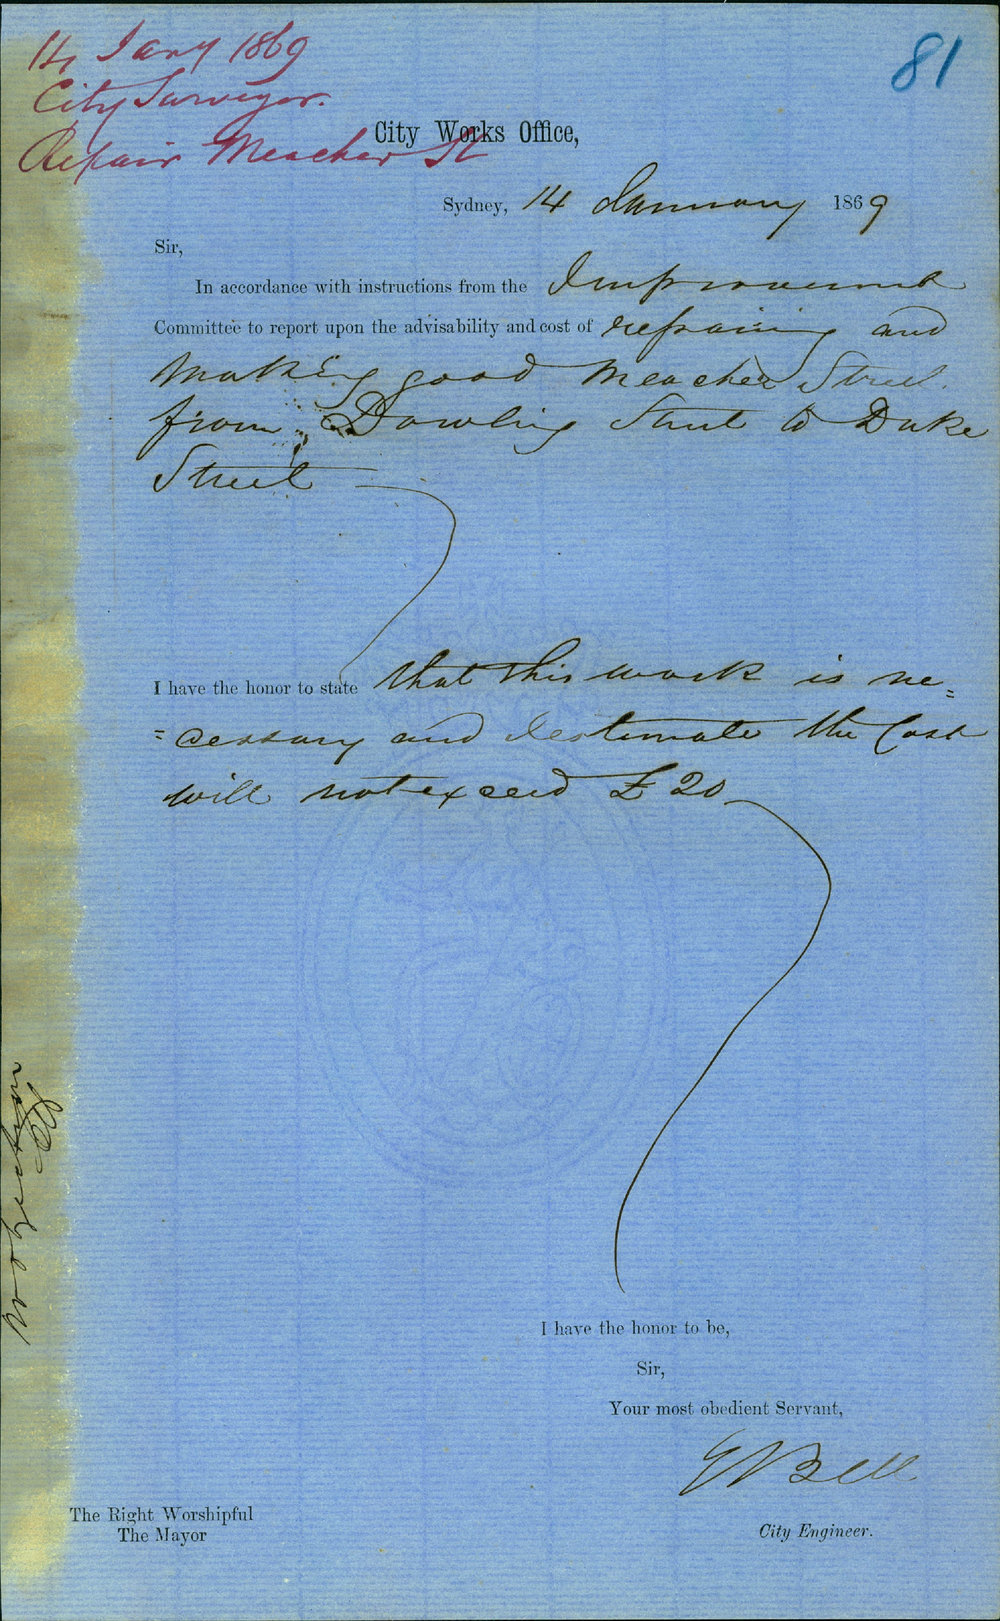 14 Jany 1869
City Surveyor.
Repair Meacher St
81
City Works Office,
Sydney, 14 January 1869
Sir,
In accordance with instructions from the Improvement
Committee to report upon the advisability and cost of repairing and
making good Meacher Street
from Dowling Street to Duke
Street
I have the honor to state that this work is ne=
=cessary and I estimate the Cost
will not exceed £20
I have the honor to be,
Sir,
Your most obedient Servant,
E Bell.
City Engineer.
The Right Worshipful
The Mayor